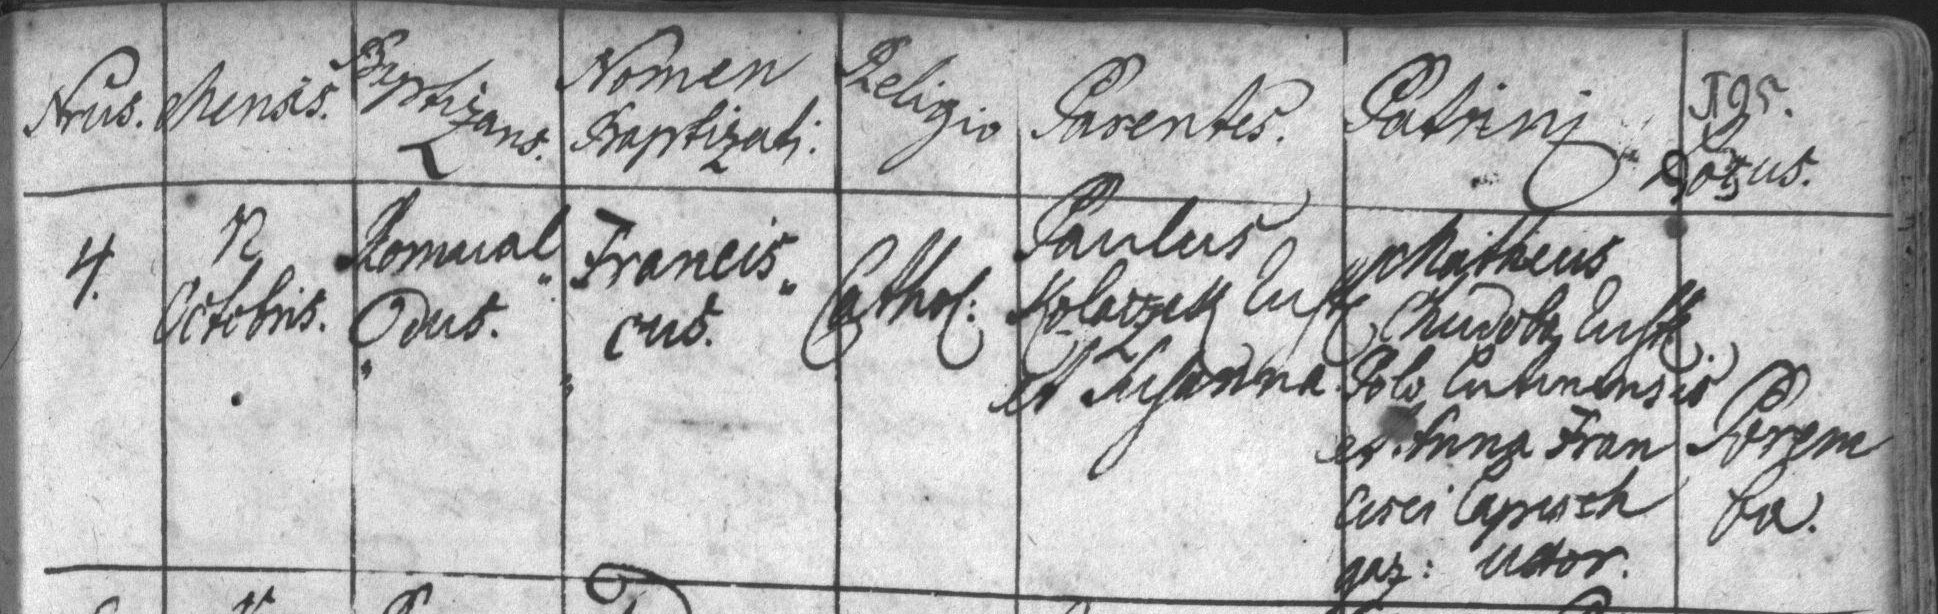 Nrus.
Mensis.
Baptizans.
Nomen
Baptizati.
Religio
Parentes.
Patrini
Locus.
4.
Octobris.
Romual„
dus.
Francis„
cus.
Cathol:
Paulus
et Susanna
Matheus
Chudoba
et Anna Fran
cisci
Uxor.
Porem
ba.